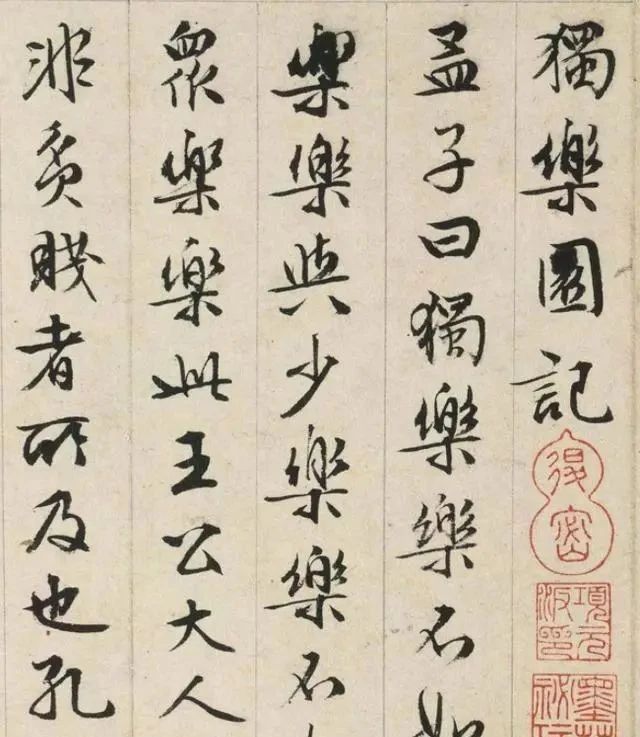 獨樂園記
退密
項元汴印
孟子曰獨樂樂不如
樂樂與少樂樂不
衆樂樂此王公大人
非貧賤者所及也孔